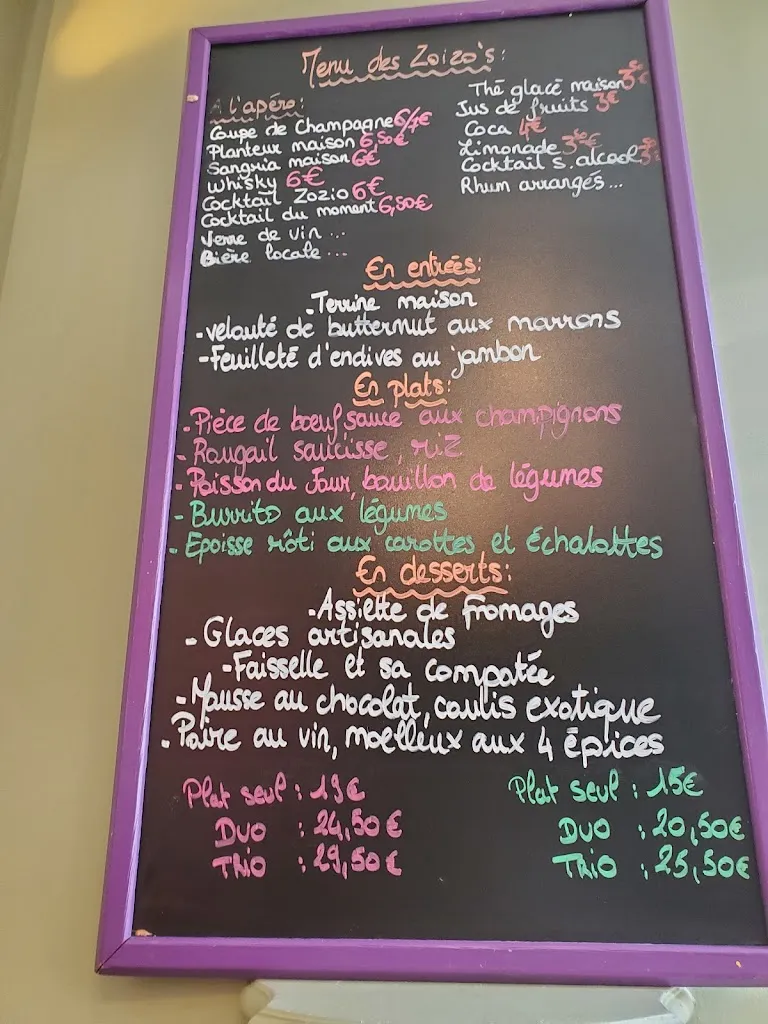 Menu des Zoizo's:
A l'apéro:
Coupe de Champagne 6/7€
Planteur maison 6,50€
Sangria maison 6€
Whisky 6€
Cocktail Zozio 6€
Cocktail du moment 6,50€
Verre de vin ...
Bière locale ...
Thé glacé maison
Jus de fruits 3€
Coca 4€
Limonade
Cocktail s. alcool
Rhum arrangés ...
En entrées:
- Terrine maison
- velouté de butternut aux marrons
- Feuilleté d'endives au jambon
En plats:
- Pièce de boeuf sauce aux champignons
- Rougail saucisse, riz
- Poisson du Jour, bouillon de légumes
- Burrito aux légumes
- Epoisse rôti aux carottes et échalottes
En desserts:
- Assiette de fromages
- Glaces artisanales
- Faisselle et sa compotée
- Mousse au chocolat, coulis exotique
- Poire au vin, moelleux aux 4 épices
Plat seul : 19€
Duo : 24,50€
Trio : 29,50€
Plat seul : 15€
Duo : 20,50€
Trio : 25,50€